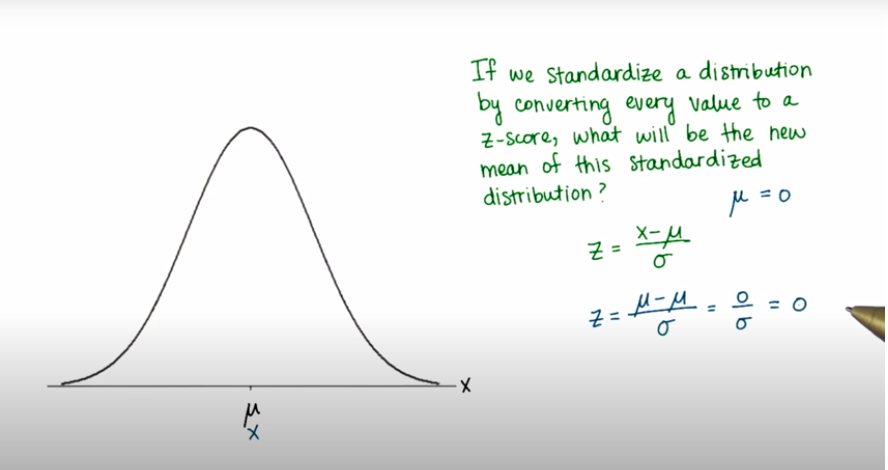 If we standardize a distribution
by converting every value to a
z-score, what will be the new
mean of this standardized
distribution?
μ = 0
z = (x-μ)/σ
z = (μ-μ)/σ = 0/σ = 0
x
μ
x